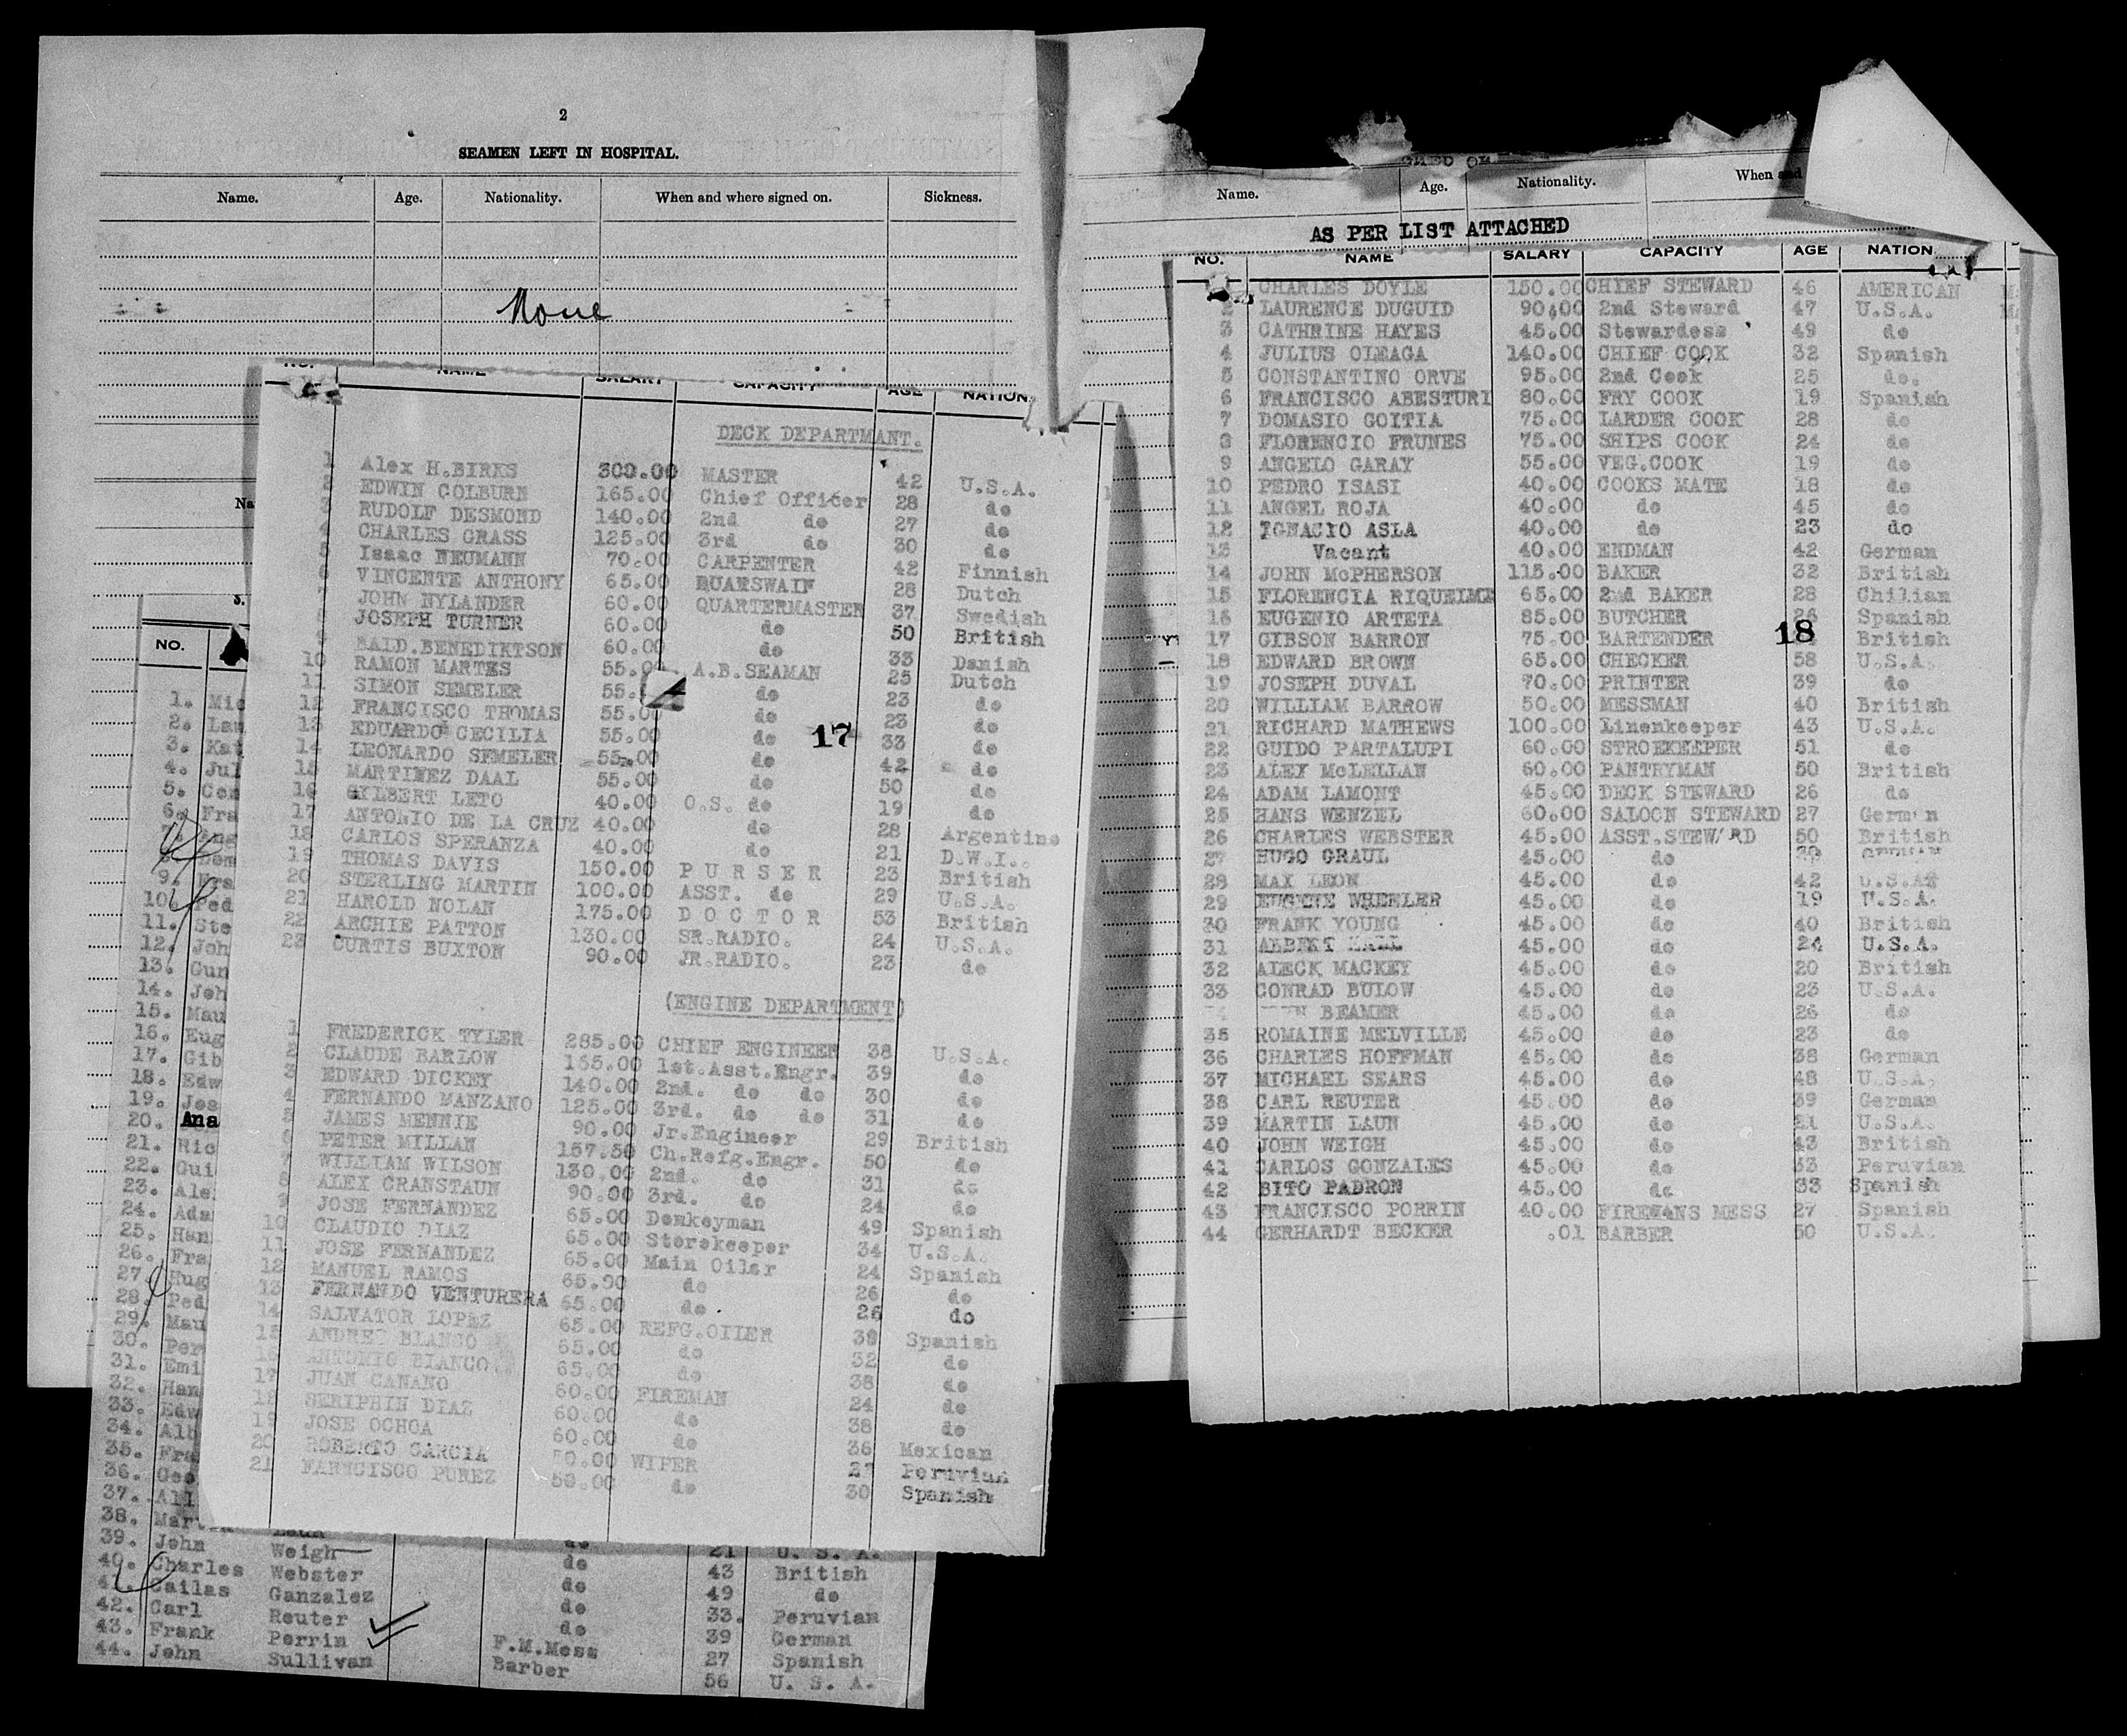 2
SEAMEN LEFT IN HOSPITAL.
Name. Age. Nationality. When and where signed on. Sickness.
None
NO. NAME SALARY CAPACITY AGE NATION.
DECK DEPARTMANT.
1 Alex H.BIRKS 300.00 MASTER 42 U.S.A.
2 EDWIN COLBURN 165.00 Chief Officer 28 do
3 RUDOLF DESMOND 140.00 2nd do 27 do
4 CHARLES GRASS 125.00 3rd do 30 do
5 Isaac NEUMANN 70.00 CARPENTER 42 Finnish
6 VINCENTE ANTHONY 65.00 28 Dutch
7 JOHN NYLANDER 60.00 QUARTERMASTER 37 Swedish
8 JOSEPH TURNER 60.00 do 50 British
9 BALD.BENEDIKTSON 60.00 do 33 Danish
10 RAMON MARTES 55.00 A.B.SEAMAN 25 Dutch
11 SIMON SEMELER 55. do 23 do
12 FRANCISCO THOMAS 55.00 do 23 do
13 EDUARDO CECILIA 55.00 do 33 do
17
14 LEONARDO SEMELER 55.00 do 42 do
15 MARTINEZ DAAL 55.00 do 50 do
16 GILBERT LETO 40.00 O.S. do 19 do
17 ANTONIO DE LA CRUZ 40.00 do 28 Argentine
18 CARLOS SPERANZA 40.00 do 21 D.W.I.
19 THOMAS DAVIS 150.00 P U R S E R 23 British
20 STERLING MARTIN 100.00 ASST. do 29 U.S.A.
21 HAROLD NOLAN 175.00 D O C T O R 53 British
22 ARCHIE PATTON 130.00 SR.RADIO. 24 U.S.A.
23 CURTIS BUXTON 90.00 JR.RADIO. 23 do
(ENGINE DEPARTMENT)
1 FREDERICK TYLER 285.00 CHIEF ENGINEER 38 U.S.A.
2 CLAUDE BARLOW 165.00 1st.Asst.Engr. 39 do
3 EDWARD DICKEY 140.00 2nd. do do 30 do
4 FERNANDO MANZANO 125.00 3rd. do do 31 do
5 JAMES MENNIE 90.00 Jr.Engineer 29 British
6 PETER MILLAN 157.50 Ch.Refg.Engr. 50 do
7 WILLIAM WILSON 130.00 2nd. do 31 do
8 ALEX CRANSTAUN 90.00 3rd. do 24 do
9 JOSE FERNANDEZ 65.00 Donkeyman 49 Spanish
10 CLAUDIO DIAZ 65.00 Storekeeper 34 U.S.A.
11 JOSE FERNANDEZ 65.00 Main Oiler 24 Spanish
12 MANUEL RAMOS 65.00 do 26 do
13 FERNANDO VENTURERA 65.00 do 26 do
14 SALVATOR LOPEZ 65.00 REFG.OIIER 38 Spanish
15 BLANCO 65.00 do 32 do
16 ANTONIO BIANCO 65.00 do 38 do
17 JUAN CANANO 60.00 FIREMAN 24 do
18 SERIPHIN DIAZ 60.00 do 38 do
19 JOSE OCHOA 60.00 do 36 Mexican
20 ROBERTO GARCIA 50.00 WIPER 27 Peruvian
21 FARNCISCO PUREZ 50.00 do 30 Spanish
Na
NO.
1. Mic
2. Lau
3. Kat
4. Jul
5. Con
6. Fra
7. Ang
8. Dom
9. Fra
10. Ped
11. Ste
12. Joh
13. Gun
14. Joh
15. Mau
16. Eug
17. Gib
18. Edw
19. Jos
20. Ana
21. Ric
22. Gui
23. Ale
24. Ada
25. Han
26. Fra
27. Hug
28. Ped
29. Mau
30. Per
31. Emi
32. Han
33. Edw
34. Alb
35. Fra
36. Geo
37. All
38. Martin Laun do 21 U. S. A.
39. John Weigh do 43 British
40. Charles Webster do 49 do
41. Cailas Ganzalez do 33. Peruvian
42. Carl Reuter do 39 German
43. Frank Perrin F.M.Mess 27 Spanish
44. John Sullivan Barber 56 U. S. A.
Name. Age. Nationality. When and
AS PER LIST ATTACHED
NO. NAME SALARY CAPACITY AGE NATION
CHARLES DOYLE 150.00 CHIEF STEWARD 46 AMERICAN
2 LAURENCE DUGUID 90.00 2nd Steward 47 U.S.A.
3 CATHRINE HAYES 45.00 Stewardess 49 do
4 JULIUS OLEAGA 140.00 CHIEF COOK 32 Spanish
5 CONSTANTINO ORVE 95.00 2nd Cook 25 do.
6 FRANCISCO ABESTURI 80.00 FRY COOK 19 Spanish
7 DOMASIO GOITIA 75.00 LARDER COOK 28 do
8 FLORENCIO FRUNES 75.00 SHIPS COOK 24 do
9 ANGELO GARAY 55.00 VEG.COOK 19 do
10 PEDRO ISASI 40.00 COOKS MATE 18 do
11 ANGEL ROJA 40.00 do 45 do
12 IGNACIO ASLA 40.00 do 23 do
13 Vacant 40.00 ENDMAN 42 German
14 JOHN McPHERSON 115.00 BAKER 32 British
15 FLORENCIA RIQUEIME 65.00 2nd BAKER 28 Chilian
16 EUGENIO ARTETA 85.00 BUTCHER 26 Spanish
17 GIBSON BARRON 75.00 BARTENDER British
18
18 EDWARD BROWN 65.00 CHECKER 58 U.S.A.
19 JOSEPH DUVAL 70.00 PRINTER 39 do
20 WILLIAM BARROW 50.00 MESSMAN 40 British
21 RICHARD MATHEWS 100.00 Linenkeeper 43 U.S.A.
22 GUIDO PARTALUPI 60.00 STROEKEEPER 51 do
23 ALEX McLELLAN 60.00 PANTRYMAN 50 British
24 ADAM LAMONT 45.00 DECK STEWARD 26 do
25 HANS WENZEL 60.00 SALOON STEWARD 27 German
26 CHARLES WEBSTER 45.00 ASST.STEWARD 50 British
27 HUGO GRAUL 45.00 do German
28 MAX LEON 45.00 do 42 U.S.A.
29 EUGENE WHEELER 45.00 do 19 U.S.A.
30 FRANK YOUNG 45.00 do 40 British
31 ALBERT 45.00 do 24 U.S.A.
32 ALECK MACKEY 45.00 do 20 British
33 CONRAD BULOW 45.00 do 23 U.S.A.
BEAMER 45.00 do 26 do
35 ROMAINE MELVILLE 45.00 do 23 do
36 CHARLES HOFFMAN 45.00 do 38 German
37 MICHAEL SEARS 45.00 do 48 U.S.A.
38 CARL REUTER 45.00 do 39 German
39 MARTIN LAUN 45.00 do 21 U.S.A.
40 JOHN WEIGH 45.00 do 43 British
41 CARLOS GONZALES 45.00 do 33 Peruvian
42 BITO PADRON 45.00 do 33 Spanish
43 FRANCISCO PORRIN 40.00 FIREMANS MESS 27 Spanish
44 GERHARDT BECKER .01 BARBER 50 U.S.A.